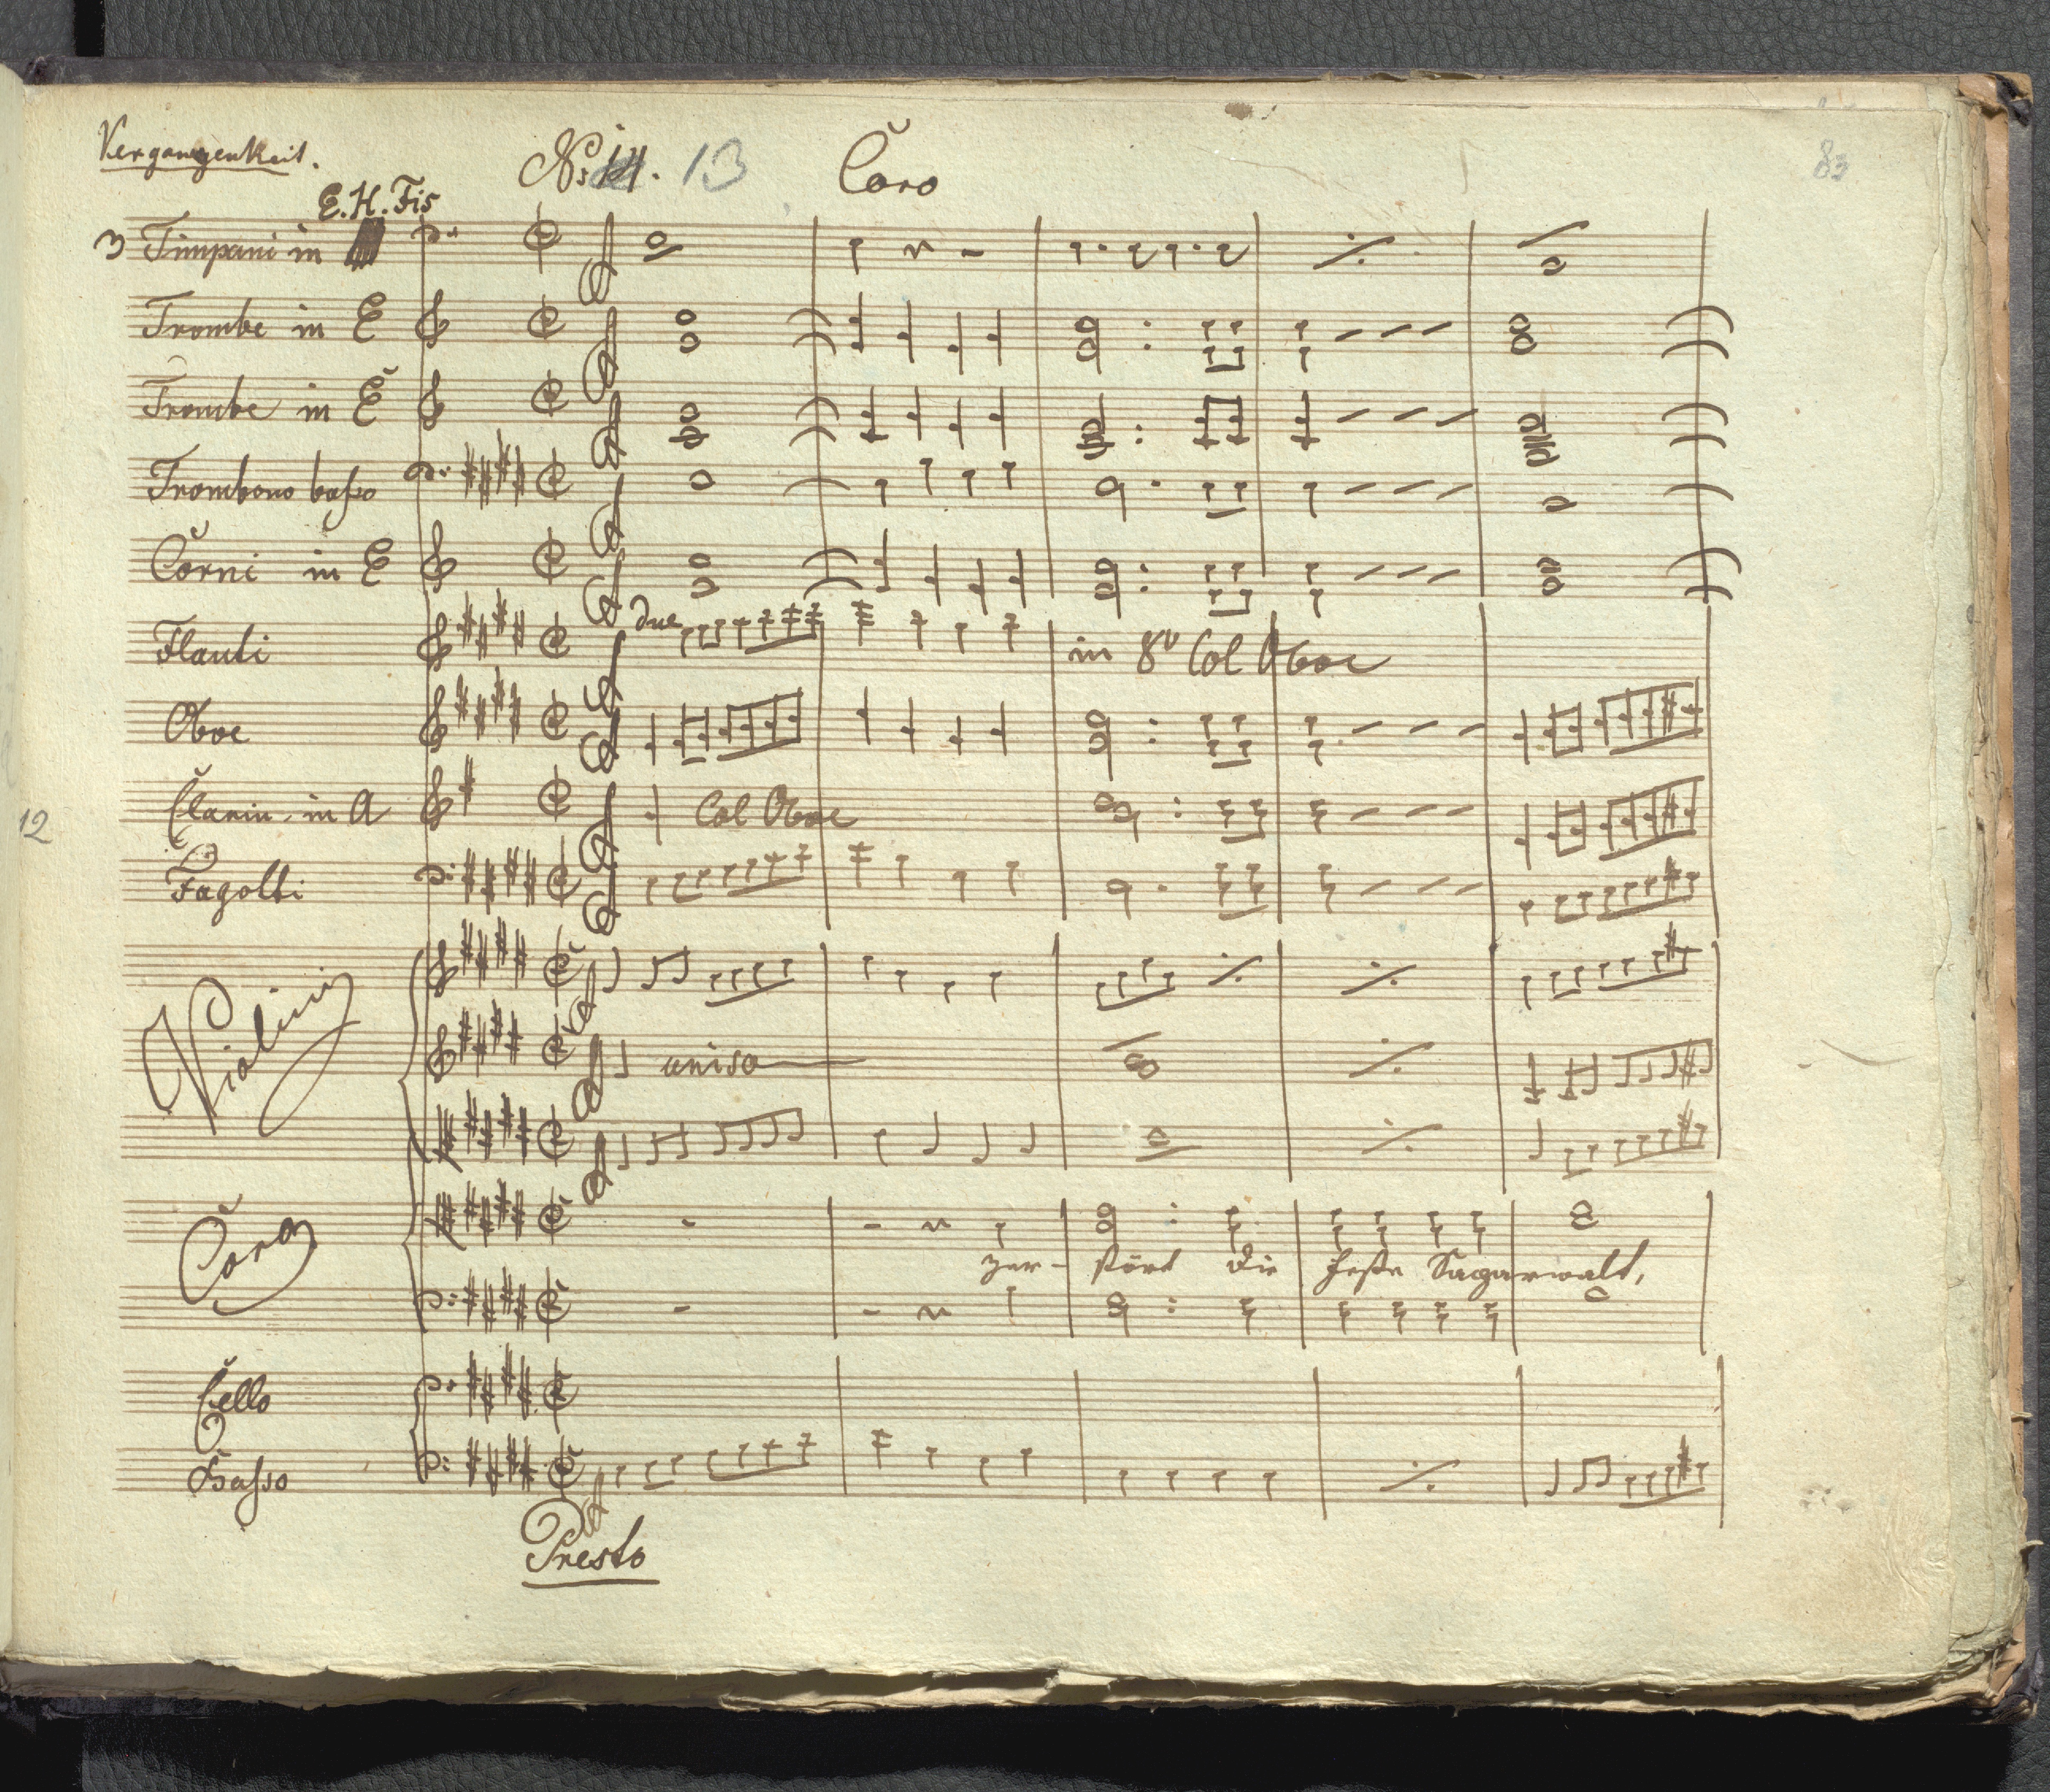 Vergangenheit.
No: 14. 13 Coro
E. H. Fis
3 Timpani in
Trombe in E
Trombe in E
Trombono basso
Corni in E
Flauti due in 8v Col Oboe
Oboe
Clarin. in A Col Oboe
12
Fagotti
Violini
uniso
Coro
zer- stört die feste Sagarwalt,
Cello
Basso
Presto